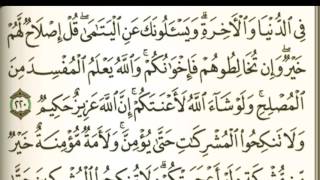 فِي الدُّنْيَا وَالْآخِرَةِ ۗ وَيَسْأَلُونَكَ عَنِ الْيَتَامَىٰ ۖ قُلْ إِصْلَاحٌ لَّهُمْ
خَيْرٌ ۖ وَإِن تُخَالِطُوهُمْ فَإِخْوَانُكُمْ ۚ وَاللَّهُ يَعْلَمُ الْمُفْسِدَ مِنَ
الْمُصْلِحِ ۚ وَلَوْ شَاءَ اللَّهُ لَأَعْنَتَكُمْ ۚ إِنَّ اللَّهَ عَزِيزٌ حَكِيمٌ ٢٢٠
وَلَا تَنكِحُوا الْمُشْرِكَاتِ حَتَّىٰ يُؤْمِنَّ ۚ وَلَأَمَةٌ مُّؤْمِنَةٌ خَيْرٌ
مِّن مُّشْرِكَةٍ وَلَوْ أَعْجَبَتْكُمْ ۗ وَلَا تُنكِحُوا الْمُشْرِكِينَ حَتَّىٰ